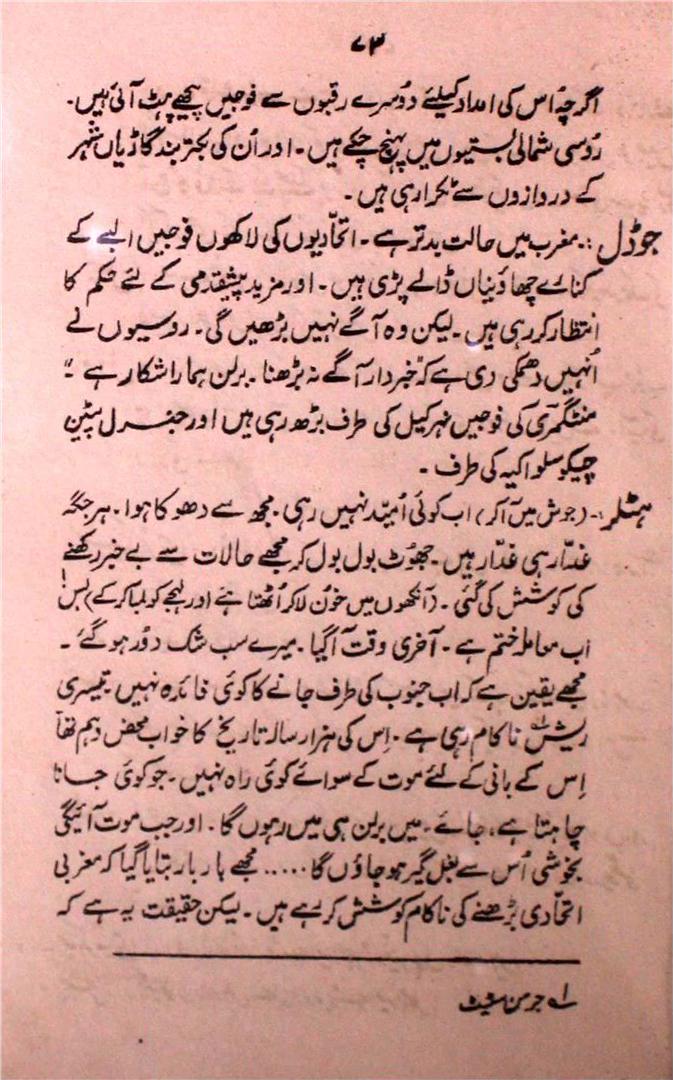 ۷۳
اگرچہ اُس کی امداد کیلئے دوسرے رقبوں سے فوجیں پیچھے ہٹ آئی ہیں۔
رُوسی شمالی بستیوں میں پہنچ چکے ہیں۔ اور اُن کی بکتر بند گاڑیاں شہر
کے دروازوں سے ٹکرا رہی ہیں۔
جوڈل:۔ مغرب میں حالت بدتر ہے۔ اتحادیوں کی لاکھوں فوجیں ایلبے کے
کنارے چھاؤنیاں ڈالے پڑی ہیں۔ اور مزید پیشقدمی کے لئے حکم کا
انتظار کر رہی ہیں۔ لیکن وہ آگے نہیں بڑھیں گی۔ روسیوں نے
اُنہیں دھمکی دی ہے کہ "خبردار آگے نہ بڑھنا۔ برلن ہمارا شکار ہے"۔
منٹگمری کی فوجیں نہر کیل کی طرف بڑھ رہی ہیں اور جنرل پیٹن
چیکوسلواکیہ کی طرف۔
ہٹلر:۔ (جوش میں آکر) اب کوئی اُمید نہیں رہی۔ مجھ سے دھوکا ہوا۔ ہر جگہ
غدّار ہی غدّار ہیں۔ جھوٹ بول بول کر مجھے حالات سے بے خبر رکھنے
کی کوشش کی گئی۔ (آنکھوں میں خُون لاکر اُٹھتا ہے اور لہجے کو لمبا کر کے) بس!
اب معاملہ ختم ہے۔ آخری وقت آگیا۔ میرے سب شک دُور ہو گئے۔
مجھے یقین ہے کہ اب جنوب کی طرف جانے کا کوئی فائدہ نہیں۔ تیسری
ریش۱ ناکام رہی ہے۔ اِس کی ہزار سالہ تاریخ کا خواب محض وہم تھا
اِس کے بانی کے لئے موت کے سوائے کوئی راہ نہیں۔ جو کوئی جانا
چاہتا ہے، جائے۔ میں برلن ہی میں رہوں گا۔ اور جب موت آئیگی
بخوشی اُس سے بغل گیر ہو جاؤں گا..... مجھے بار بار بتایا گیا کہ مغربی
اتحادی بڑھنے کی ناکام کوشش کر رہے ہیں۔ لیکن حقیقت یہ ہے کہ
۱؎ جرمن سٹیٹ